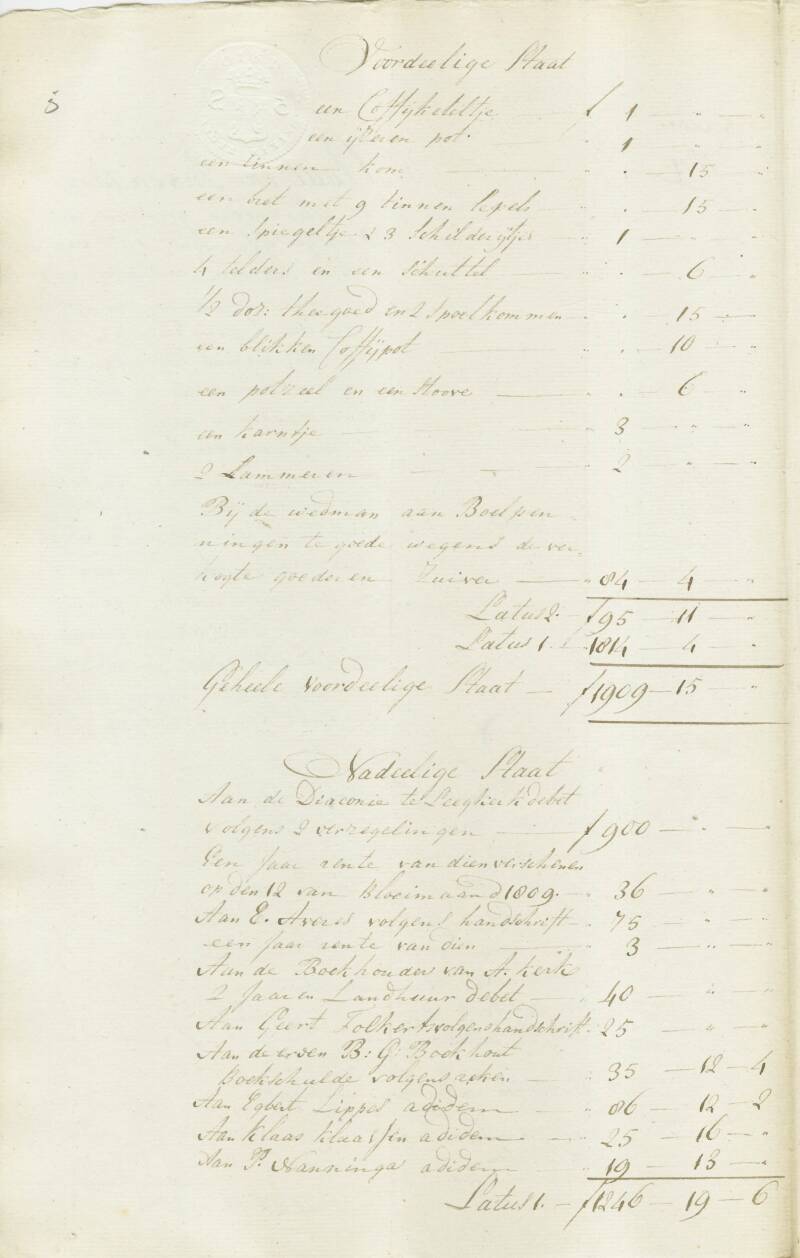 5
Voordeelige Staat
een Coffijketeltje — f 1 — " — "
een ijseren pot " 1 — " — "
een tinnen kom " . — 15 — "
een bret met 9 tinnen lepels " . — 15 — "
een Spiegeltje & 3 Schilderijtjes " 1 — " — "
4 telders en een schuttel " . — 6 — "
1/2 doz: theegoed en 2 Spoelkommen " . — 15 — "
een blikken Coffijpot — " . — 10 — "
een potzeel en een Stoove — " . — 6 — "
een karntje — " 3 " "
2 Lammeren — " 2 " — "
Bij de wedman aan Boelpen
ningen te goede wegens de ver=
kogte goederen Zuiver — " 84 — 4 — "
Latus 2. f 95 — 11 — "
Latus 1. f 1814 — 4 — "
Geheele Voordeelige Staat — f 1909 — 15 — "
Nadeelige Staat
Aan de Diaconie te Leegkerk debet
volgens 2 verzegelingen — f 900 — " — "
Een Jaar rente van dien verschenen
op den 12 van Bloeimaand 1809. " 36 — " — "
Aan E. Averes volgens handschrift " 75 — " — "
een Jaar rente van dien — " 3 — " — "
Aan de Boekhouder van A. kerk
2 Jaaren Landhuur debet — " 40 — " — "
Aan Geert Folkerts volgens handschrift " 25 — " — "
Aan de erven B: G: Boekhout
Boekschulde volgens reken — " 35 — 12 — 4
Aan Egbert Lippes adidem — " 86 — 12 — 2
Aan Klaas Klaassen adidem — " 25 — 16 — "
Aan P. Nanninga adidem — " 19 — 18 — "
Latus 1. — f 1246 — 19 — 6